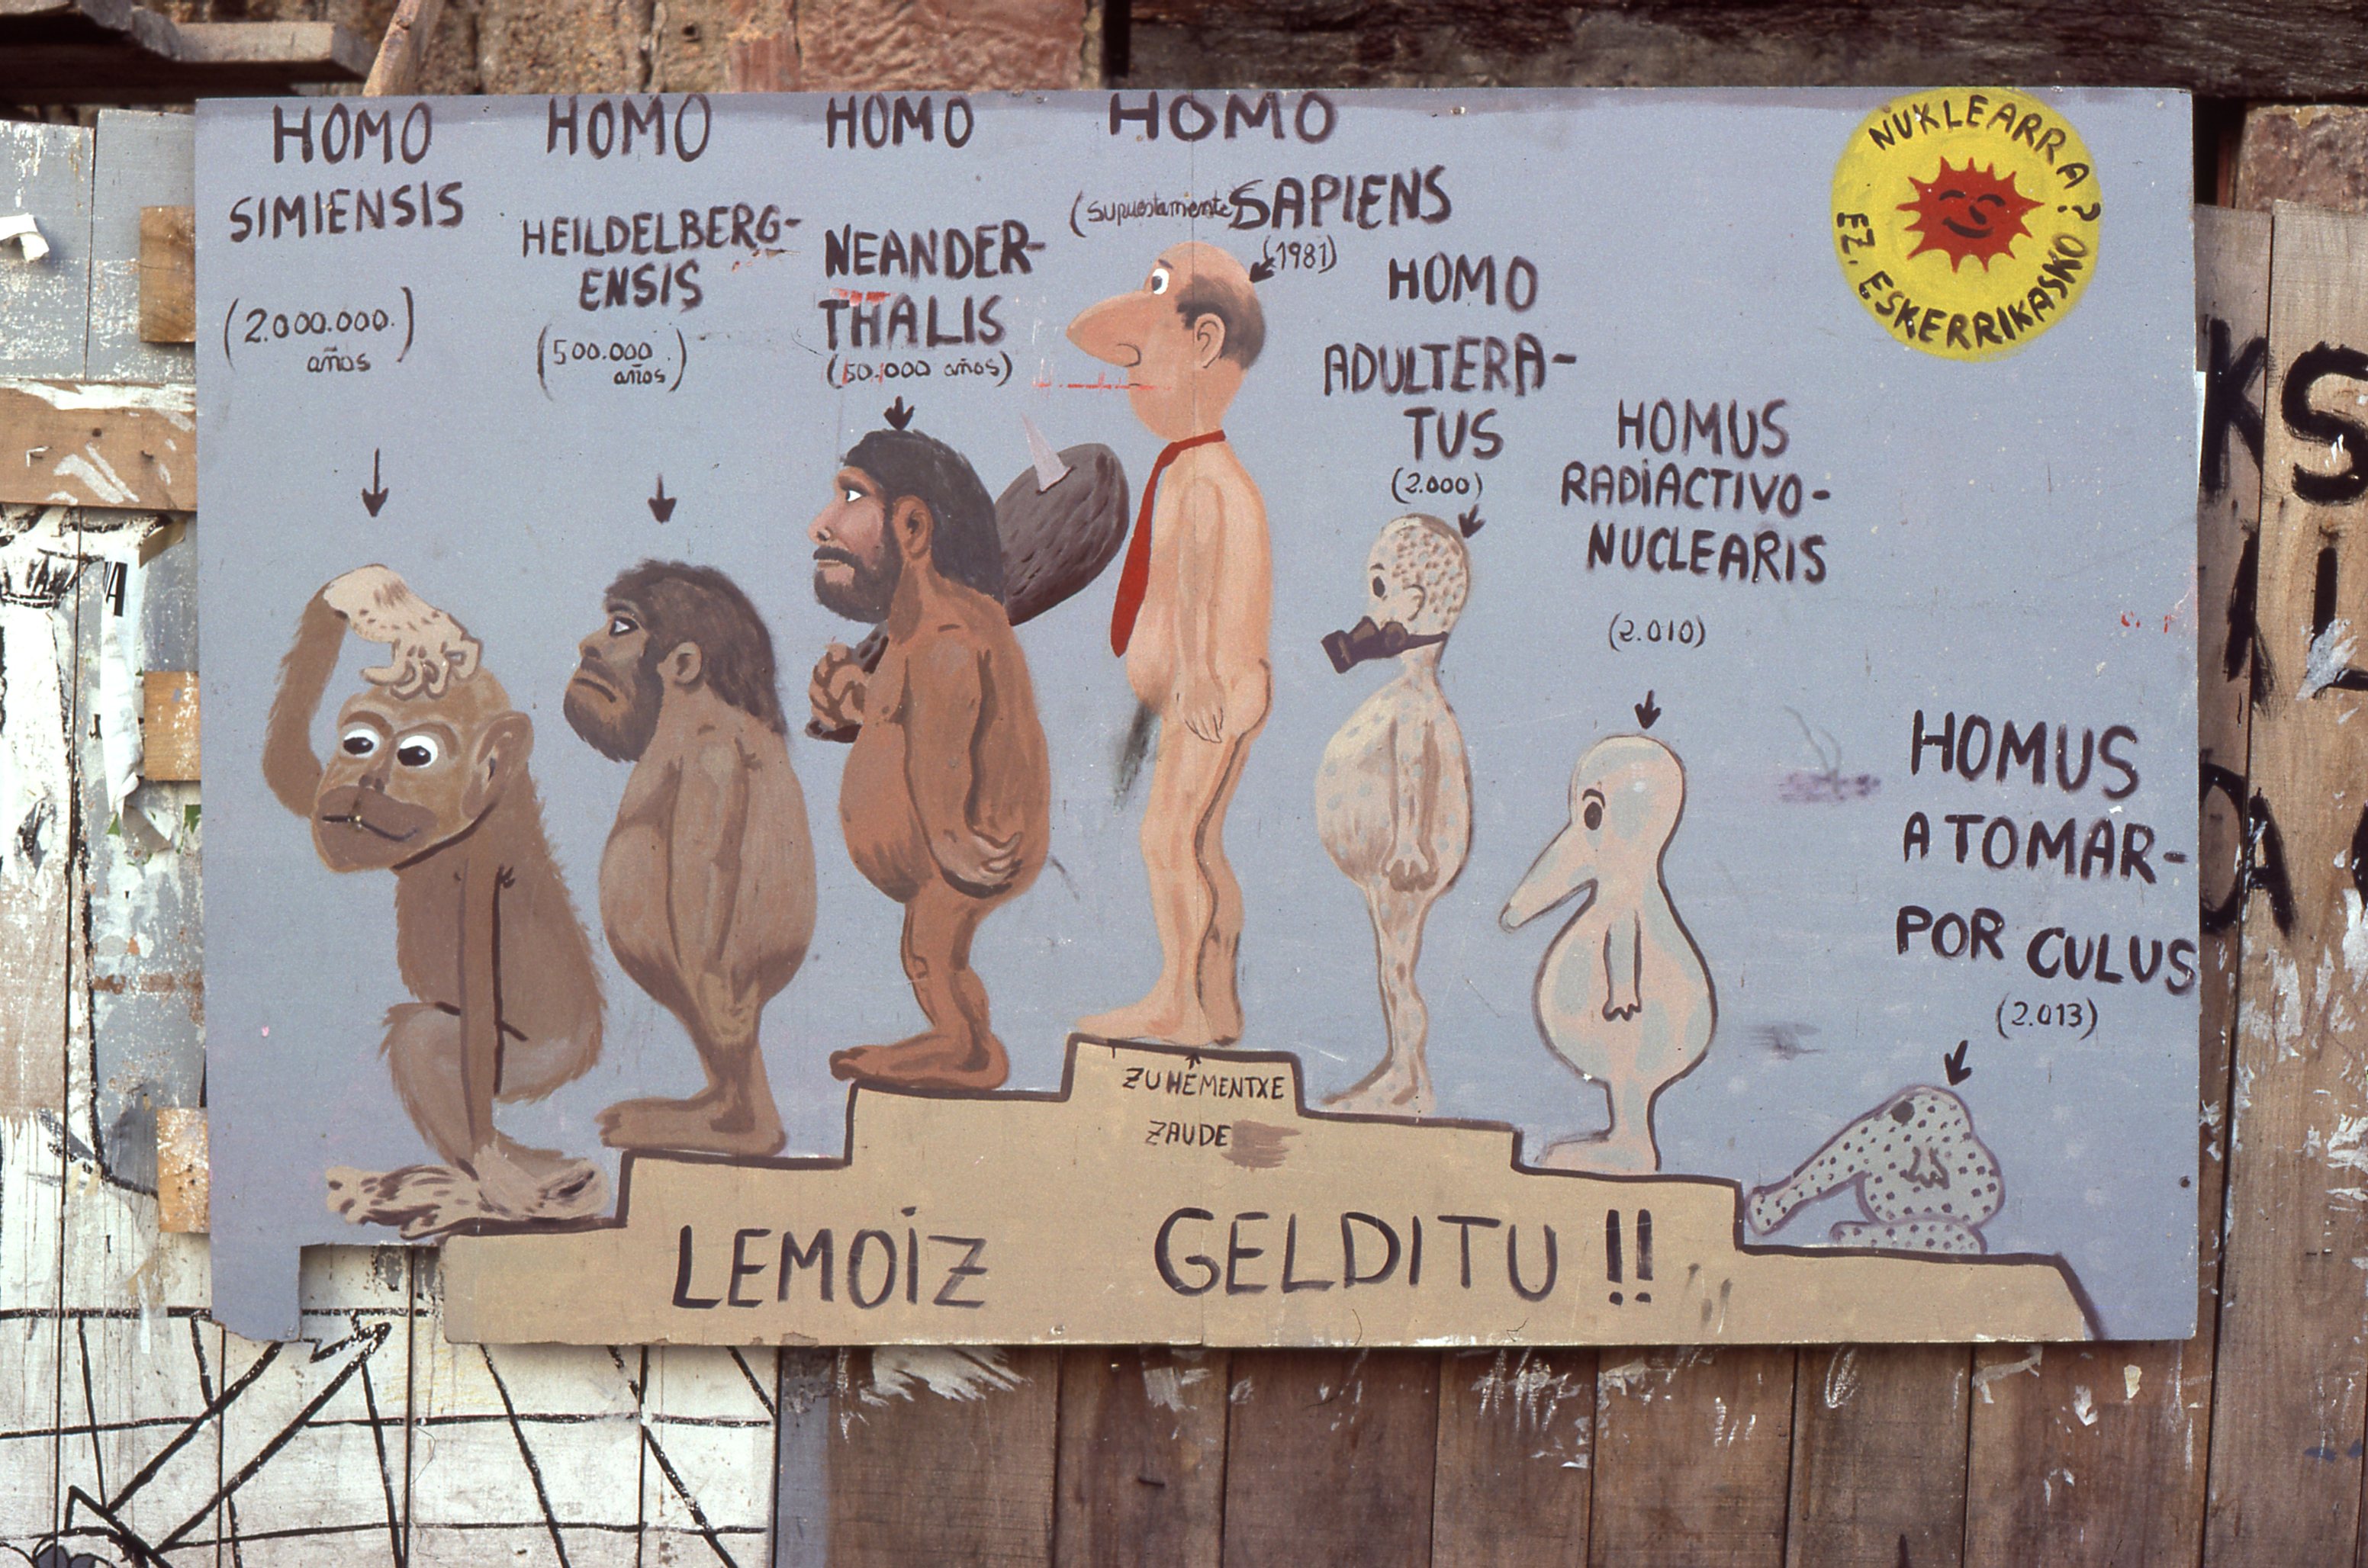 HOMO
SIMIENSIS
(2.000.000.
años)
HOMO
HEILDELBERG-
ENSIS
(500.000.
años)
HOMO
NEANDER-
THALIS
(50.000 años)
HOMO
(supuestamente SAPIENS
(1981)
HOMO
ADULTERA-
TUS
(2.000)
HOMUS
RADIACTIVO-
NUCLEARIS
(2.010)
HOMUS
ATOMAR-
POR CULUS
(2.013)
NUKLEARRA?
EZ, ESKERRIKASKO
ZU HEMENTXE
ZAUDE
LEMOIZ GELDITU !!